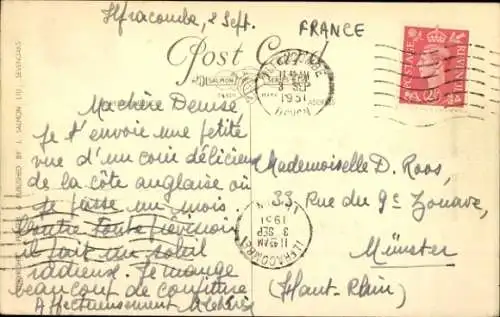 Ilfracombe, 2 Sept.
FRANCE
Post Card
SALMON
POSTAGE
REVENUE
2½D
ILFRACOMBE
11 45 AM
3 SEP
1951
DEVON
ADDRESS
Ma chère Denise,
Je t'envoie une petite
vue d'un coin délicieux
de la côte anglaise où
je passe un mois.
Contre toute prévision
il fait un soleil
radieux. Je mange
beaucoup de confiture
Affectueusement
Mademoiselle D. Roos,
33 Rue du 9e Zouave,
Münster
(Haut-Rhin)
ILFRACOMBE
11 45 AM
3 SEP
1951
PUBLISHED BY J. SALMON LTD., SEVENOAKS